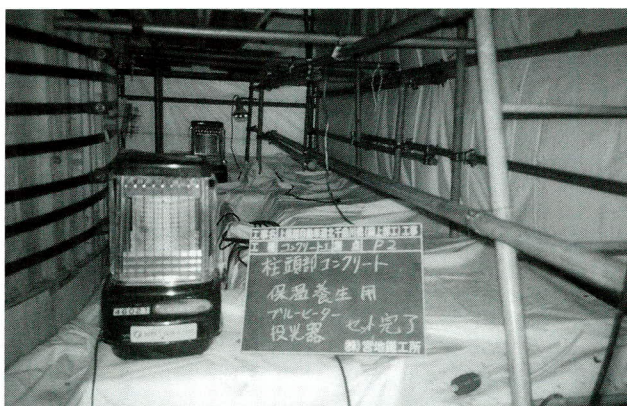 工種 コンクリート工 測点 P2
柱頭部コンクリート
保温養生用
ブルーヒーター
投光器 セット完了
(株)宮地鐵工所